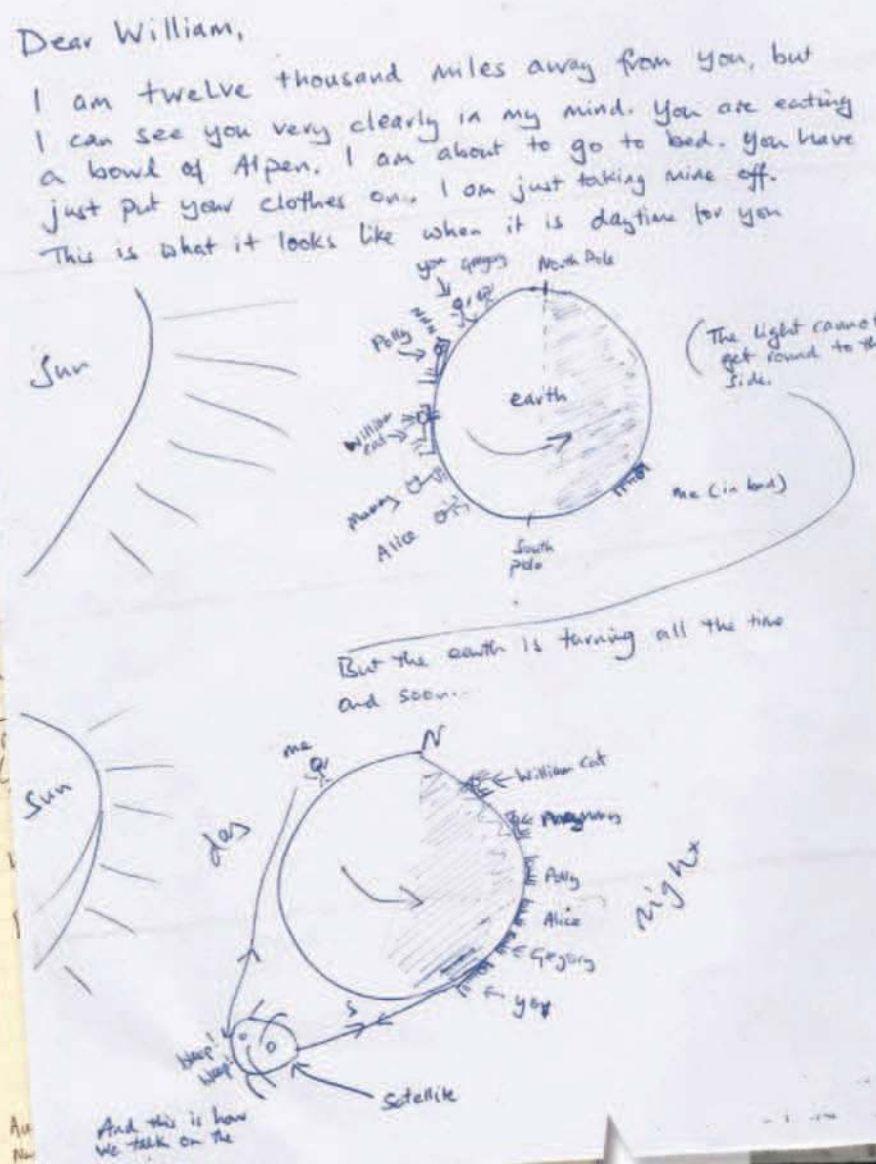 Dear William,
I am twelve thousand miles away from you, but
I can see you very clearly in my mind. You are eating
a bowl of Alpen. I am about to go to bed. You have
just put your clothes on. I am just taking mine off.
This is what it looks like when it is daytime for you
you Gregory North Pole
Sun
Polly
(The light cannot
get round to the
side.
earth
William
Cat
Mummy
me (in bed)
Alice
South
pole
But the earth is turning all the time
and soon...
me
N
William Cat
Sun
day
Polly
night
Alice
Gregory
you
S
Bleep!
Bleep!
Satellite
And this is how
we talk on the